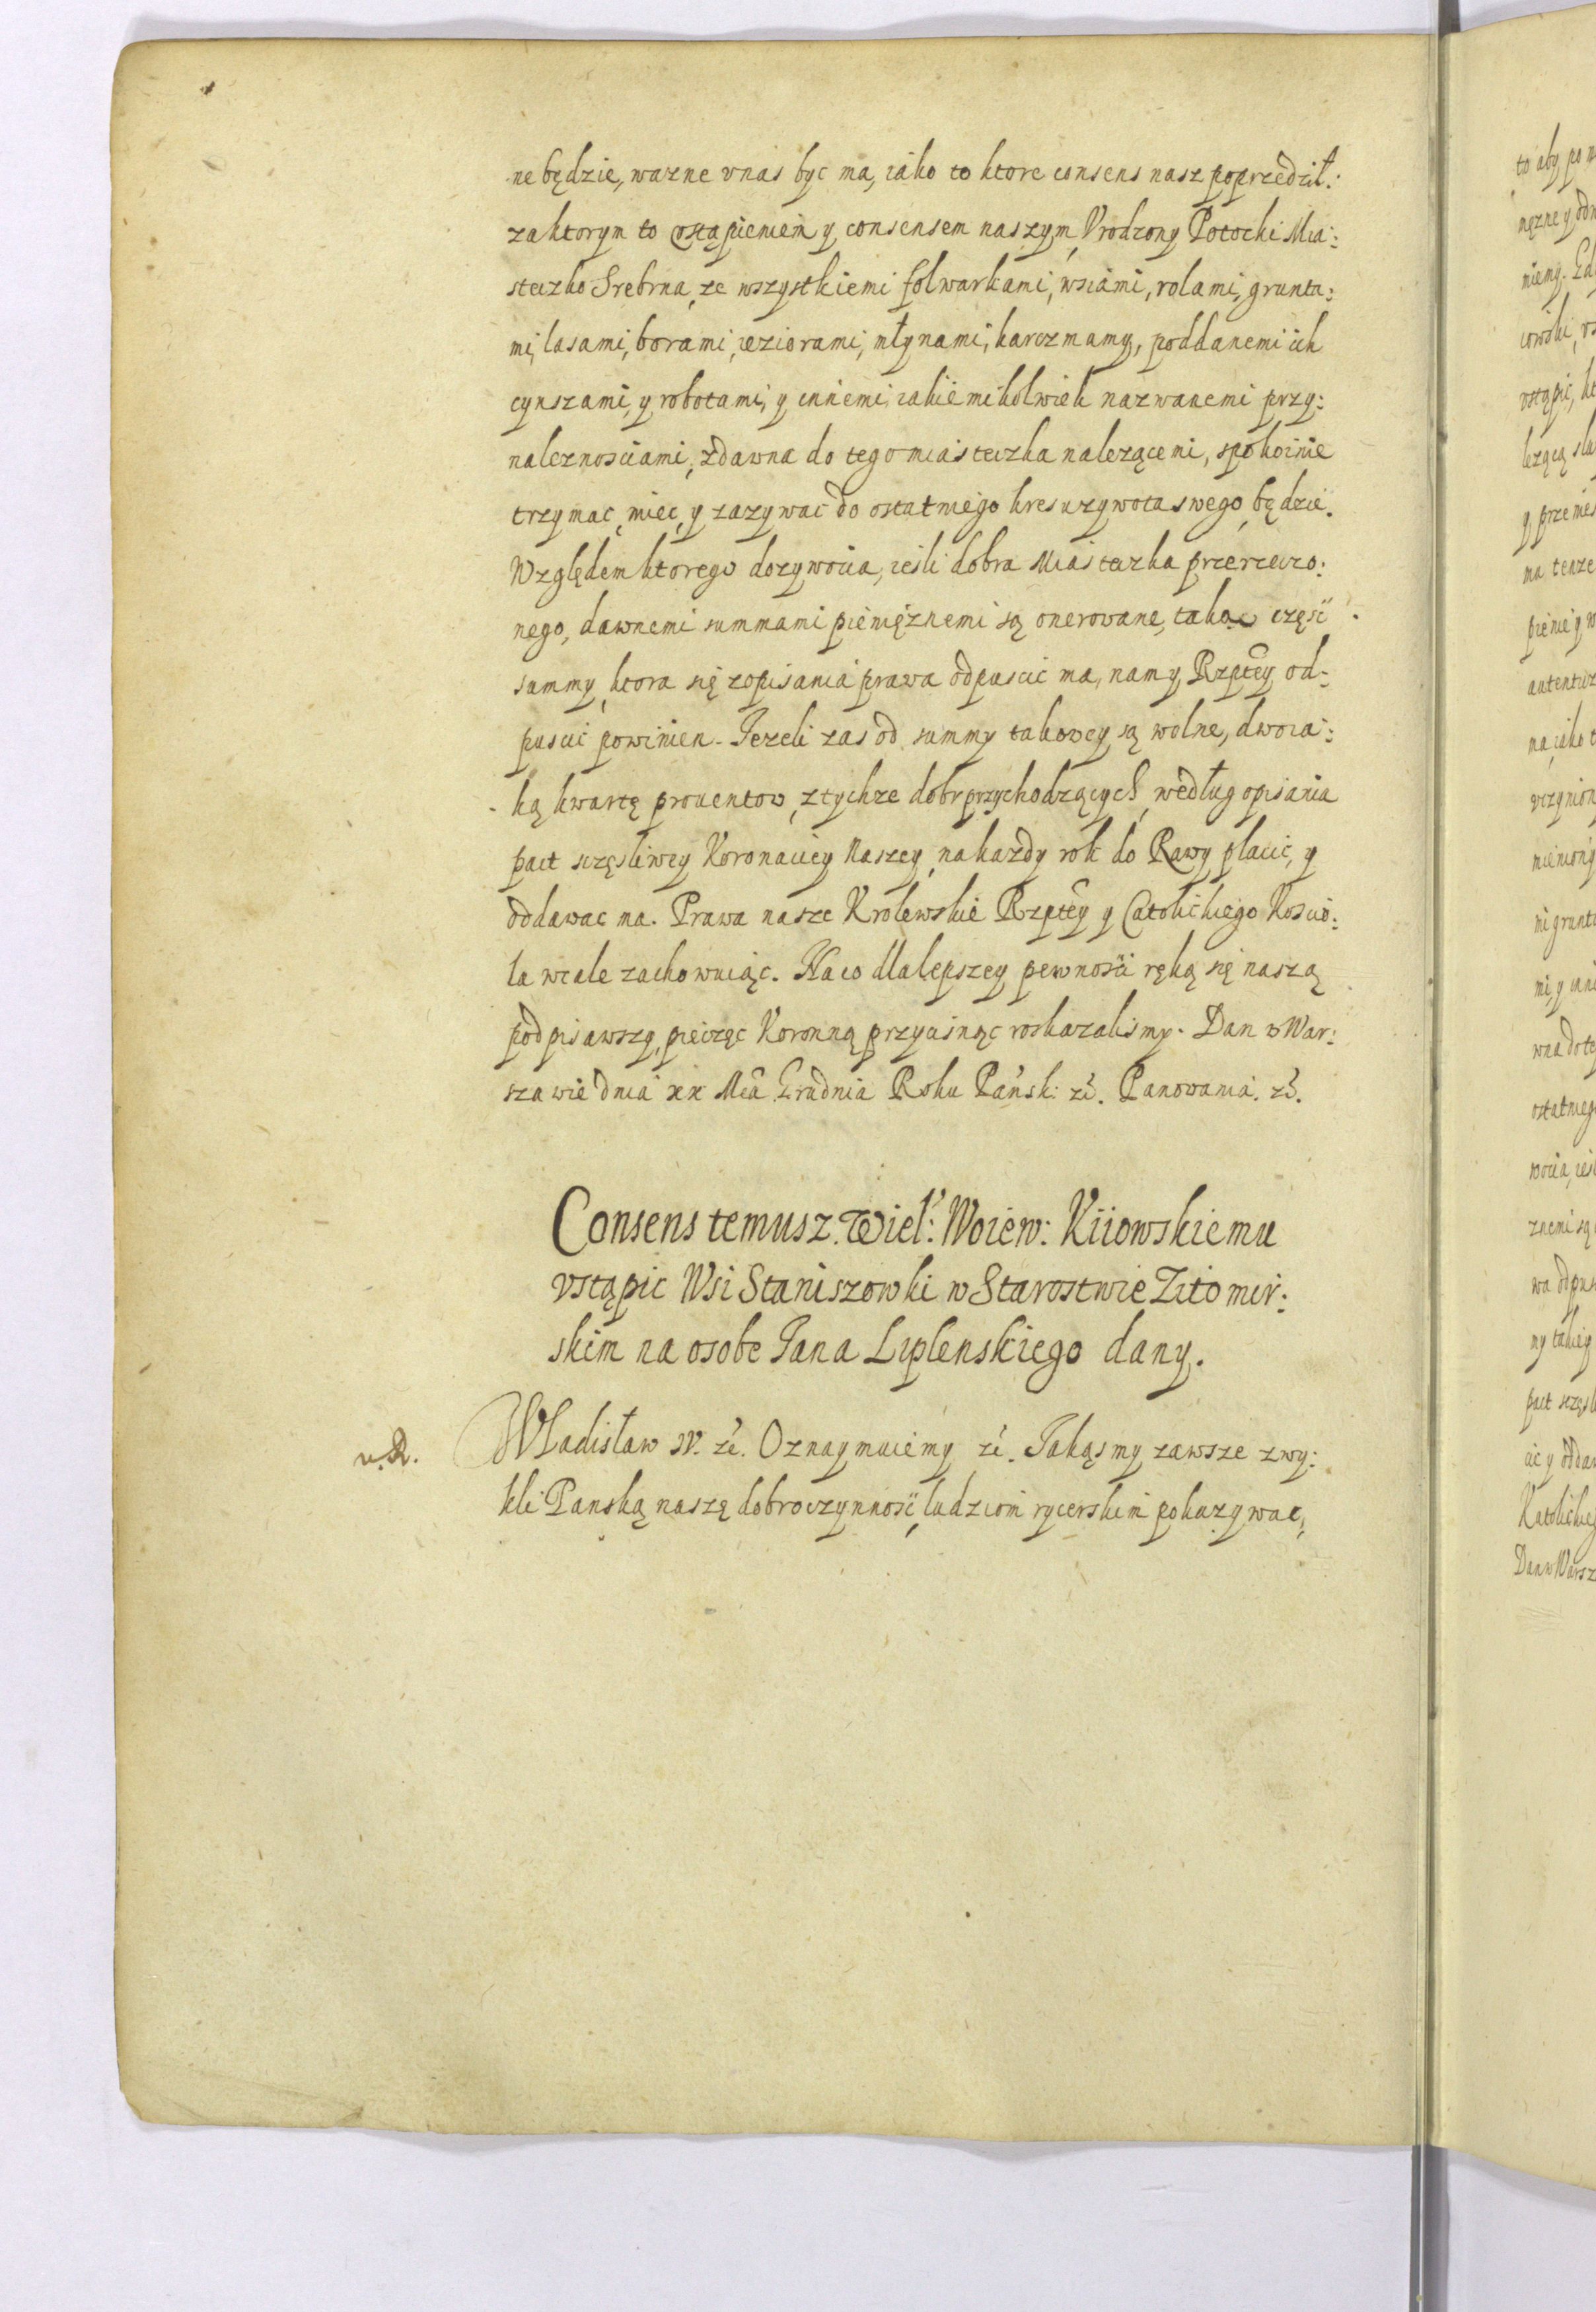 ne będzie, wazne v nas byc ma, iako to ktore consens nasz poprzedził.
za ktorym to vstąpieniem y consensem naszym Vrodzony Potocki Mia:
steczko Srebrna, ze wszystkiemi folwarkami, wsiami, rolami, grunta:
mi, lasami, borami, ieziorami, młynami, karczmamy, poddanemi ich
cynszami, y robotami, y innemi iakiemikolwiek nazwanemi przy:
naleznosciami, zdawna do tego miasteczka nalezącemi, spokoinie
trzymac, miec, y zazywac do ostatniego kresu zywota swego będzie.
Względem ktorego dozywocia, iesli dobra Miasteczka przerzeczo:
nego, dawnemi summami pienięznemi są onerowane, taką częsć
summy, ktora się z opisania prawa odpuscic ma, nam y Rzptey od:
puscic powinien. Jezeli zas od summy takowey są wolne, dwoia:
ką kwartę prouentow, z tychze dobr przychodzących, według opisania
pact sczęsliwey Koronaciey Naszey, na kazdy rok do Rawy placic, y
oddawac ma. Prawa nasze Krolewskie Rzptey y Catolickiego Koscio:
la wcale zachowuiąc. Na co dla lepszey pewnosci ręką się naszą
podpisawszy, pieczęc Koronną przycisnąc roskazalismy. Dan w War:
szawie dnia xx Mca Grudnia Roku Pansk: zc. Panowania. zc.
Consens temusz Wiel: Woiew: Kiiowskiemu
vstąpic Wsi Staniszowki w Starostwie Zitomir:
skim na osobe Jana Liplenskiego dany.
Władisław IV. zc. Oznaymuiemy zc. Jakąsmy zawsze zwy:
kli Panską naszę dobroczynnosć, ludziom rycerskim pokazywac,